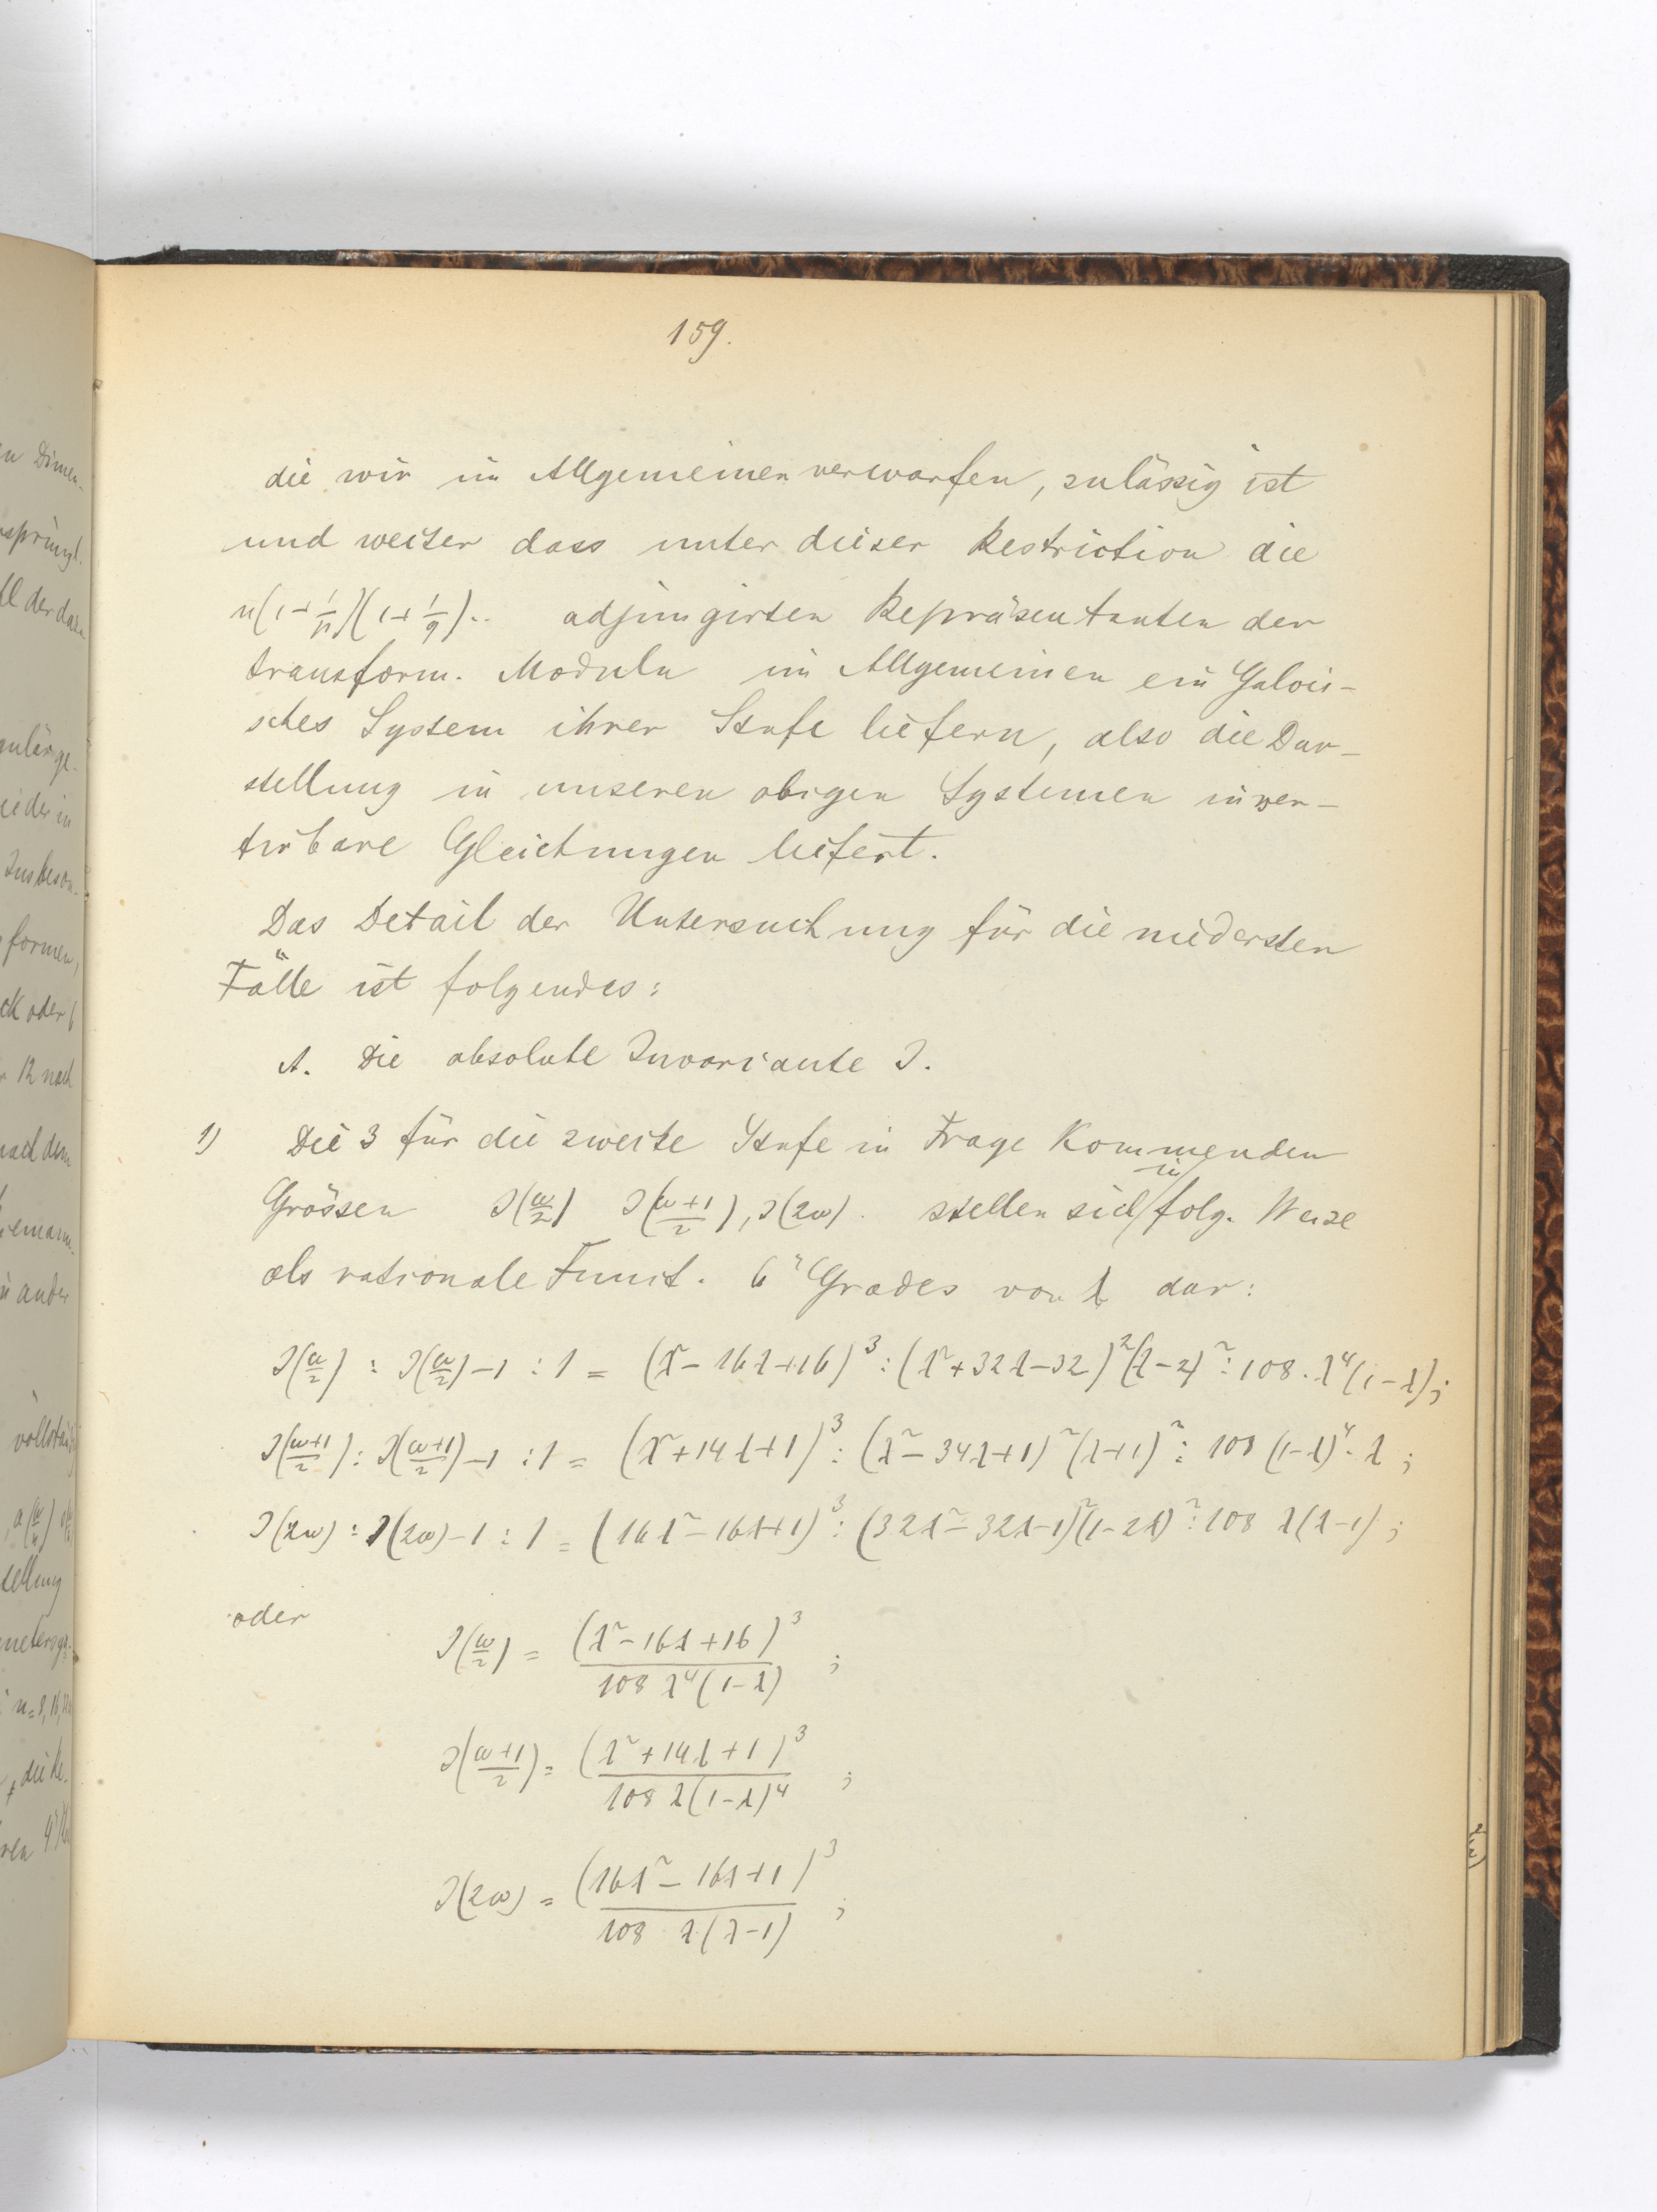 159.
die wir im Allgemeinen verwarfen, zulässig ist
und weiter dass unter dieser Restriction die
n(1+1/p)(1+1/q).. adjungirten Repräsentanten der
transform. Moduln im Allgemeinen ein Galois-
sches System ihrer Stufe liefern, also die Dar-
stellung in unseren obigen Systemen inver-
tirbare Gleichungen liefert.
Das Detail der Untersuchung für die niedersten
Fälle ist folgendes:
A. Die absolute Invariante J.
1) Die 3 für die zweite Stufe in Frage kommenden
Grössen J(ω/2) J((ω+1)/2), J(2ω). stellen sich in folg. Weise
als rationale Funct. 6" Grades von λ dar:
J(ω/2) : J(ω/2)-1 : 1 = (λ²-16λ+16)³ : (λ²+32λ-32)²(λ-2)² : 108.λ⁴(1-λ);
J((ω+1)/2) : J((ω+1)/2)-1 : 1 = (λ²+14λ+1)³ : (λ²-34λ+1)²(λ+1)² : 108 (1-λ)⁴.λ ;
J(2ω) : J(2ω)-1 : 1 = (16λ²-16λ+1)³ : (32λ²-32λ-1)²(1-2λ)² : 108 λ(λ-1) ;
oder J(ω/2) = (λ²-16λ+16)³ / 108 λ⁴(1-λ) ;
J((ω+1)/2) = (λ²+14λ+1)³ / 108 λ(1-λ)⁴ ;
J(2ω) = (16λ²-16λ+1)³ / 108 λ(λ-1) ;